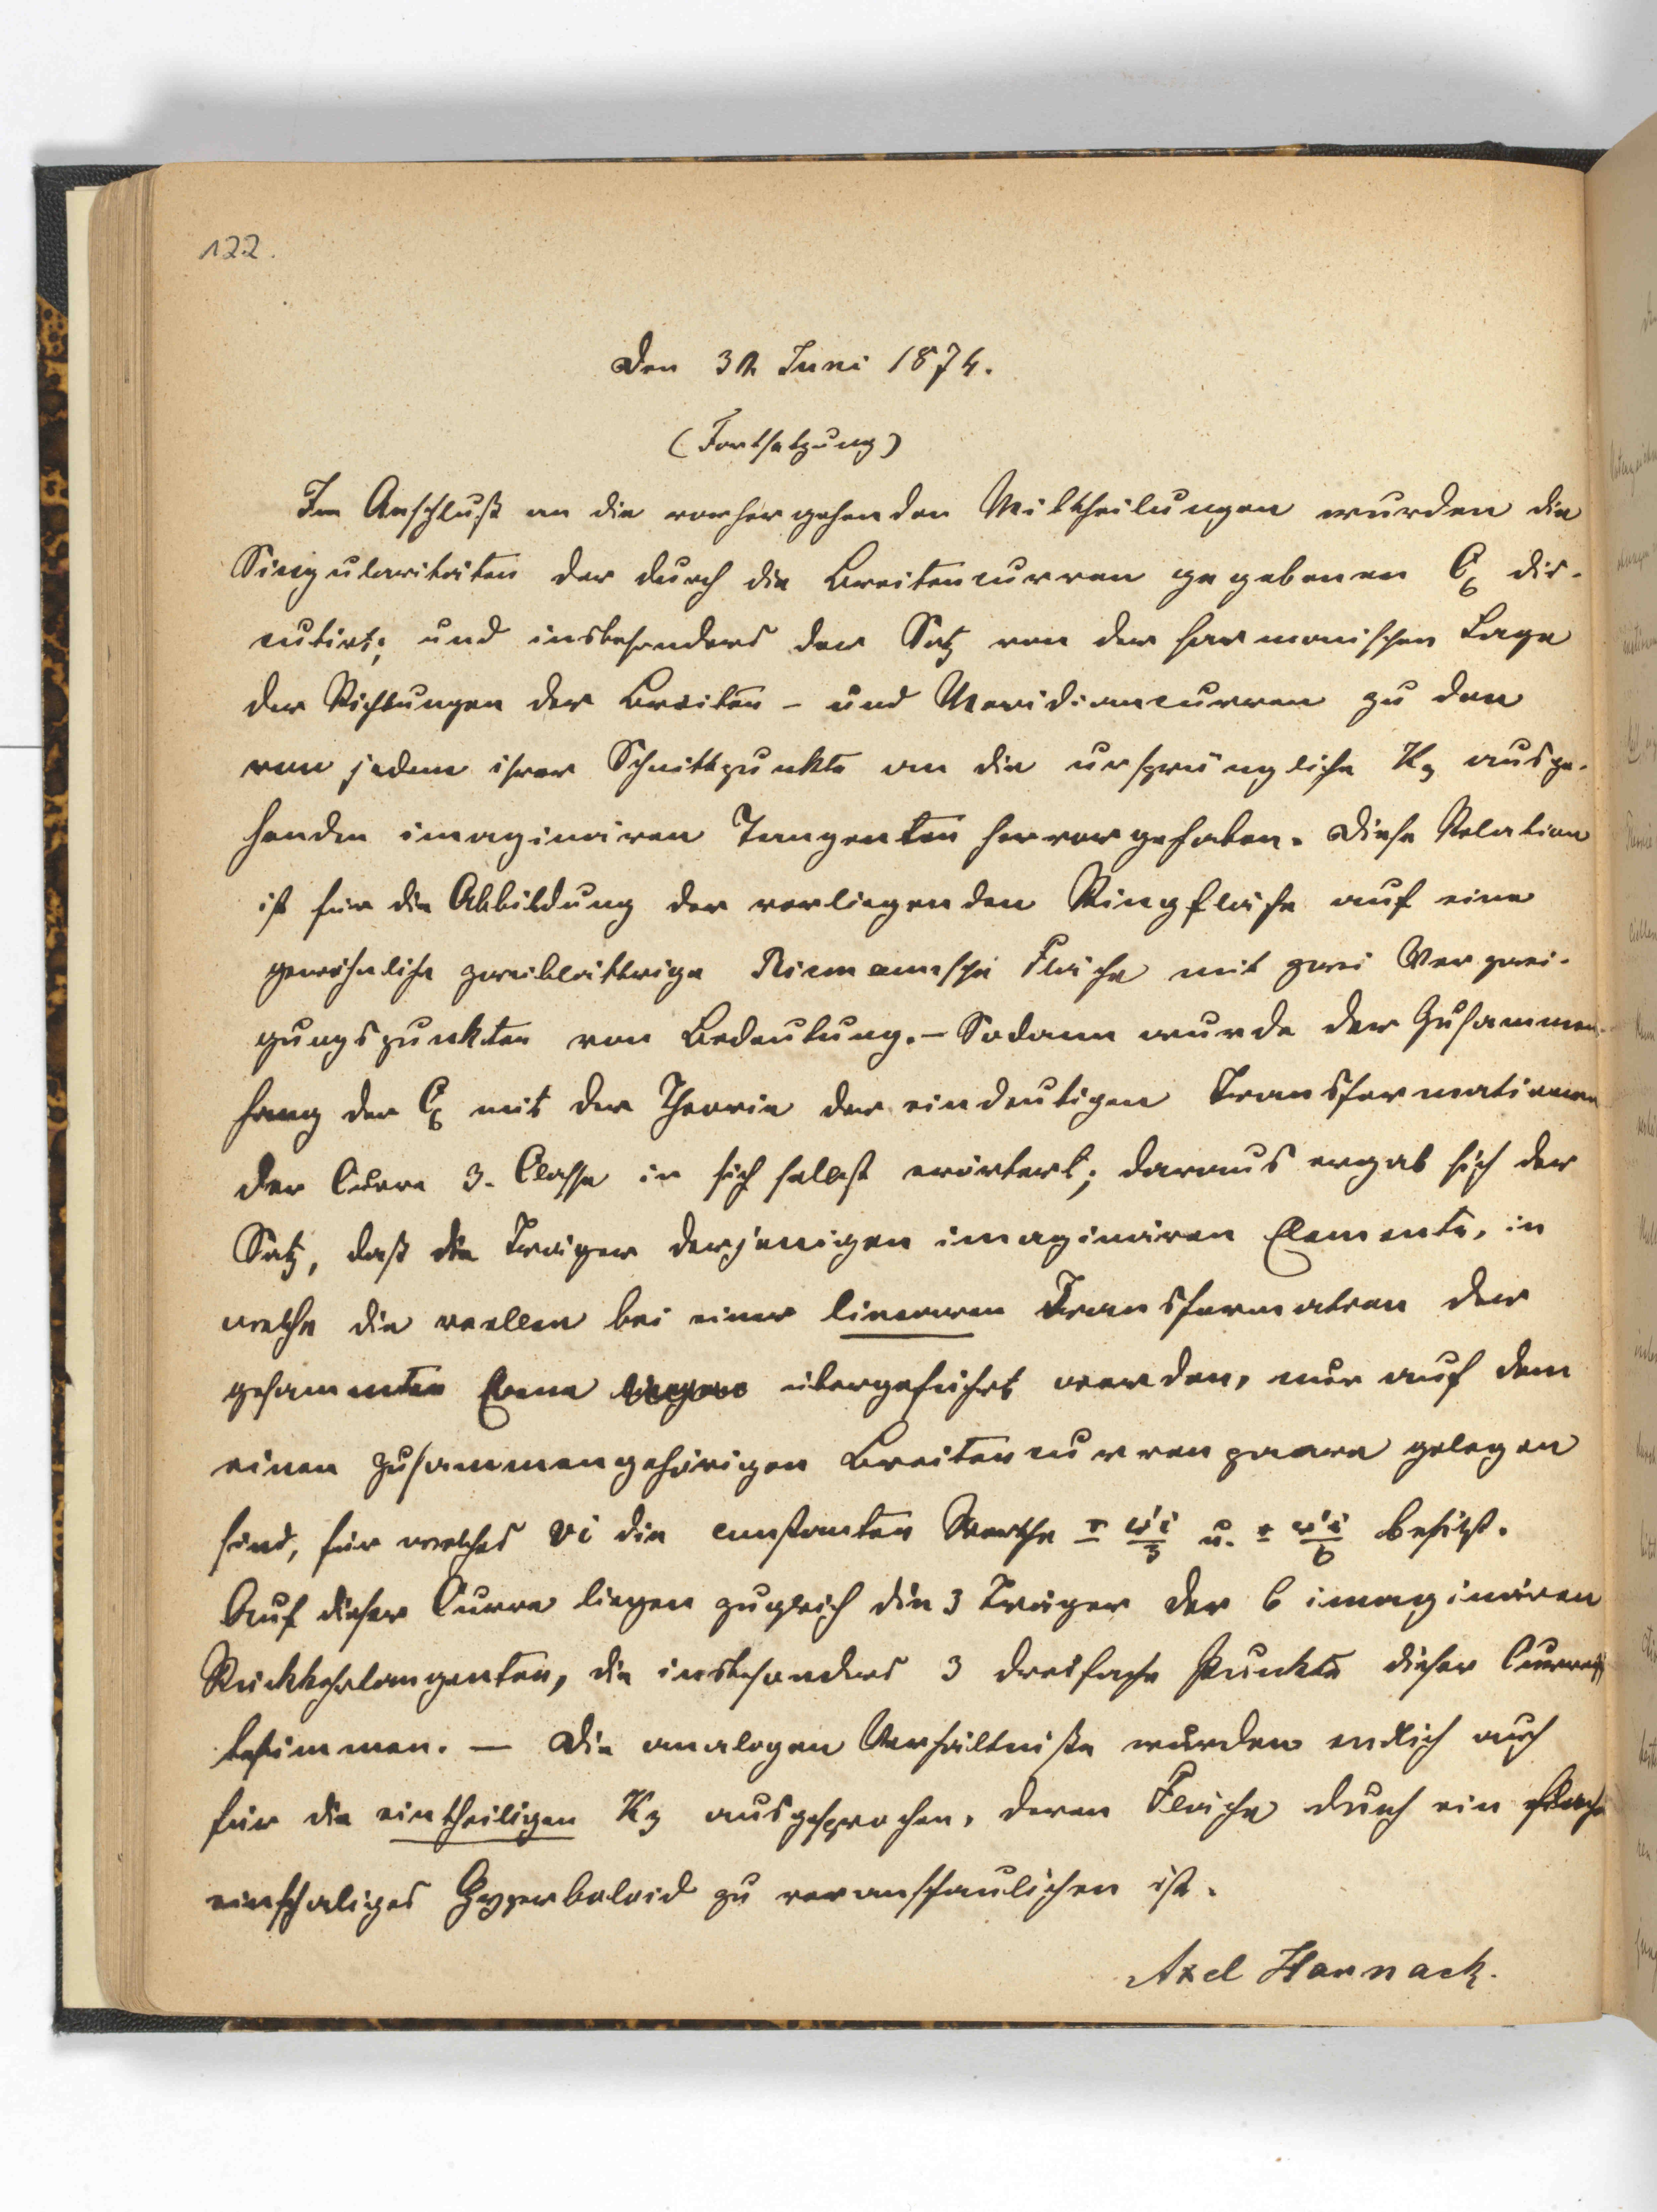 122.
Den 30. Juni 1874.
(Fortsetzung)
Im Anschluß an die vorhergehenden Mittheilungen wurden die
Singularitäten der durch die Breitencurven gegebenen C6 dis-
cutirt; und insbesonders der Satz von der harmonischen Lage
der Richtungen der Breiten- und Meridiancurven zu den
von jedem ihrer Schnittpunkte an die ursprüngliche K3 ausge-
henden imaginären Tangenten hervorgehoben. Diese Relation
ist für die Abbildung der vorliegenden Ringfläche auf eine
gewöhnliche zweiblättrige Riemannsche Fläche mit zwei Verzwei-
gungspunkten von Bedeutung. – Sodann wurde der Zusammen-
hang der C6 mit der Theorie der eindeutigen Transformationen
der Curve 3. Classe in sich selbst erörtert; daraus ergab sich der
Satz, daß die Träger derjenigen imaginären Elemente, in
welche die reellen bei einer linearen Transformation der
gesammten Ebene übergeführt werden, nur auf dem
einen zusammengehörigen Breitencurvenpaare gelegen
sind, für welches vi die constanten Werthe ± ω'i/3 u. ± ω'i/6 besitzt.
Auf dieser Curve liegen zugleich die 3 Träger der 6 imaginären
Rückkehrtangenten, die insbesonders 3 dreifache Punkte dieser Curve
bestimmen. – Die analogen Verhältniße wurden endlich auch
für die eintheiligen K3 ausgesprochen, deren Fläche durch ein
einschaliges Hyperboloid zu veranschaulichen ist.
Axel Harnack.